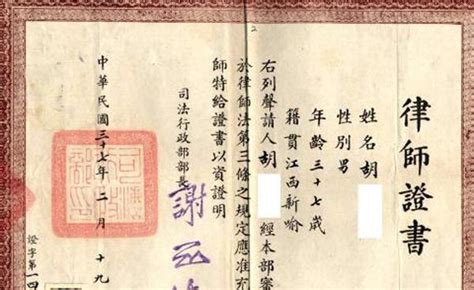 律師證書
姓名胡
性別男
年齡三十七歲
籍貫江西新喻
右列聲請人胡 經本部審
於律師法第三條之規定應准充
師特給證書以資證明
司法行政部部長
謝
中華民國三十七年二月十九
證字第一四